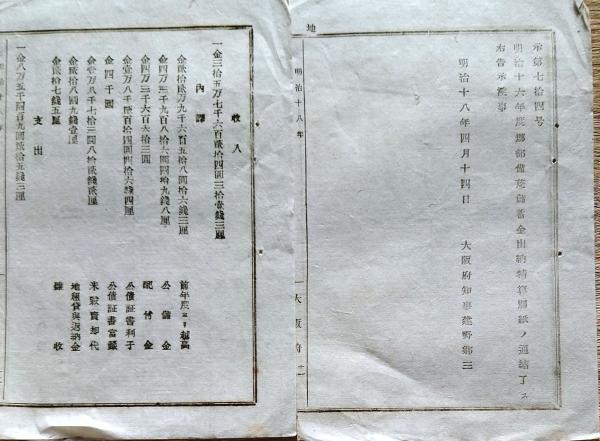 地
示第七拾四号
明治十六年度郡部備荒儲蓄金出納精算別紙ノ通結了ス
右告示候事
明治十八年四月十四日
大阪府知事建野郷三
明治十八年
大阪府
収入
一金三拾五万七千六百弐拾四圓三拾壱銭三厘
内訳
金弐拾弐万九千六百五拾八圓拾六銭三厘
前年度ヨリ越高
金四万三千八百六圓四拾九銭八厘
公儲金
金四万三千六百六拾三圓
配付金
金壱万八千弐百四圓四拾六銭四厘
公債証書利子
金四千圓
公債証書当籤
金壱万八千七拾三圓八拾弐銭弐厘
米穀売却代
金弐拾八圓九銭壱厘
地租貸与返納金
金弐拾七銭五厘
雑収
支出
一金八万五千四百九圓弐拾五銭三厘